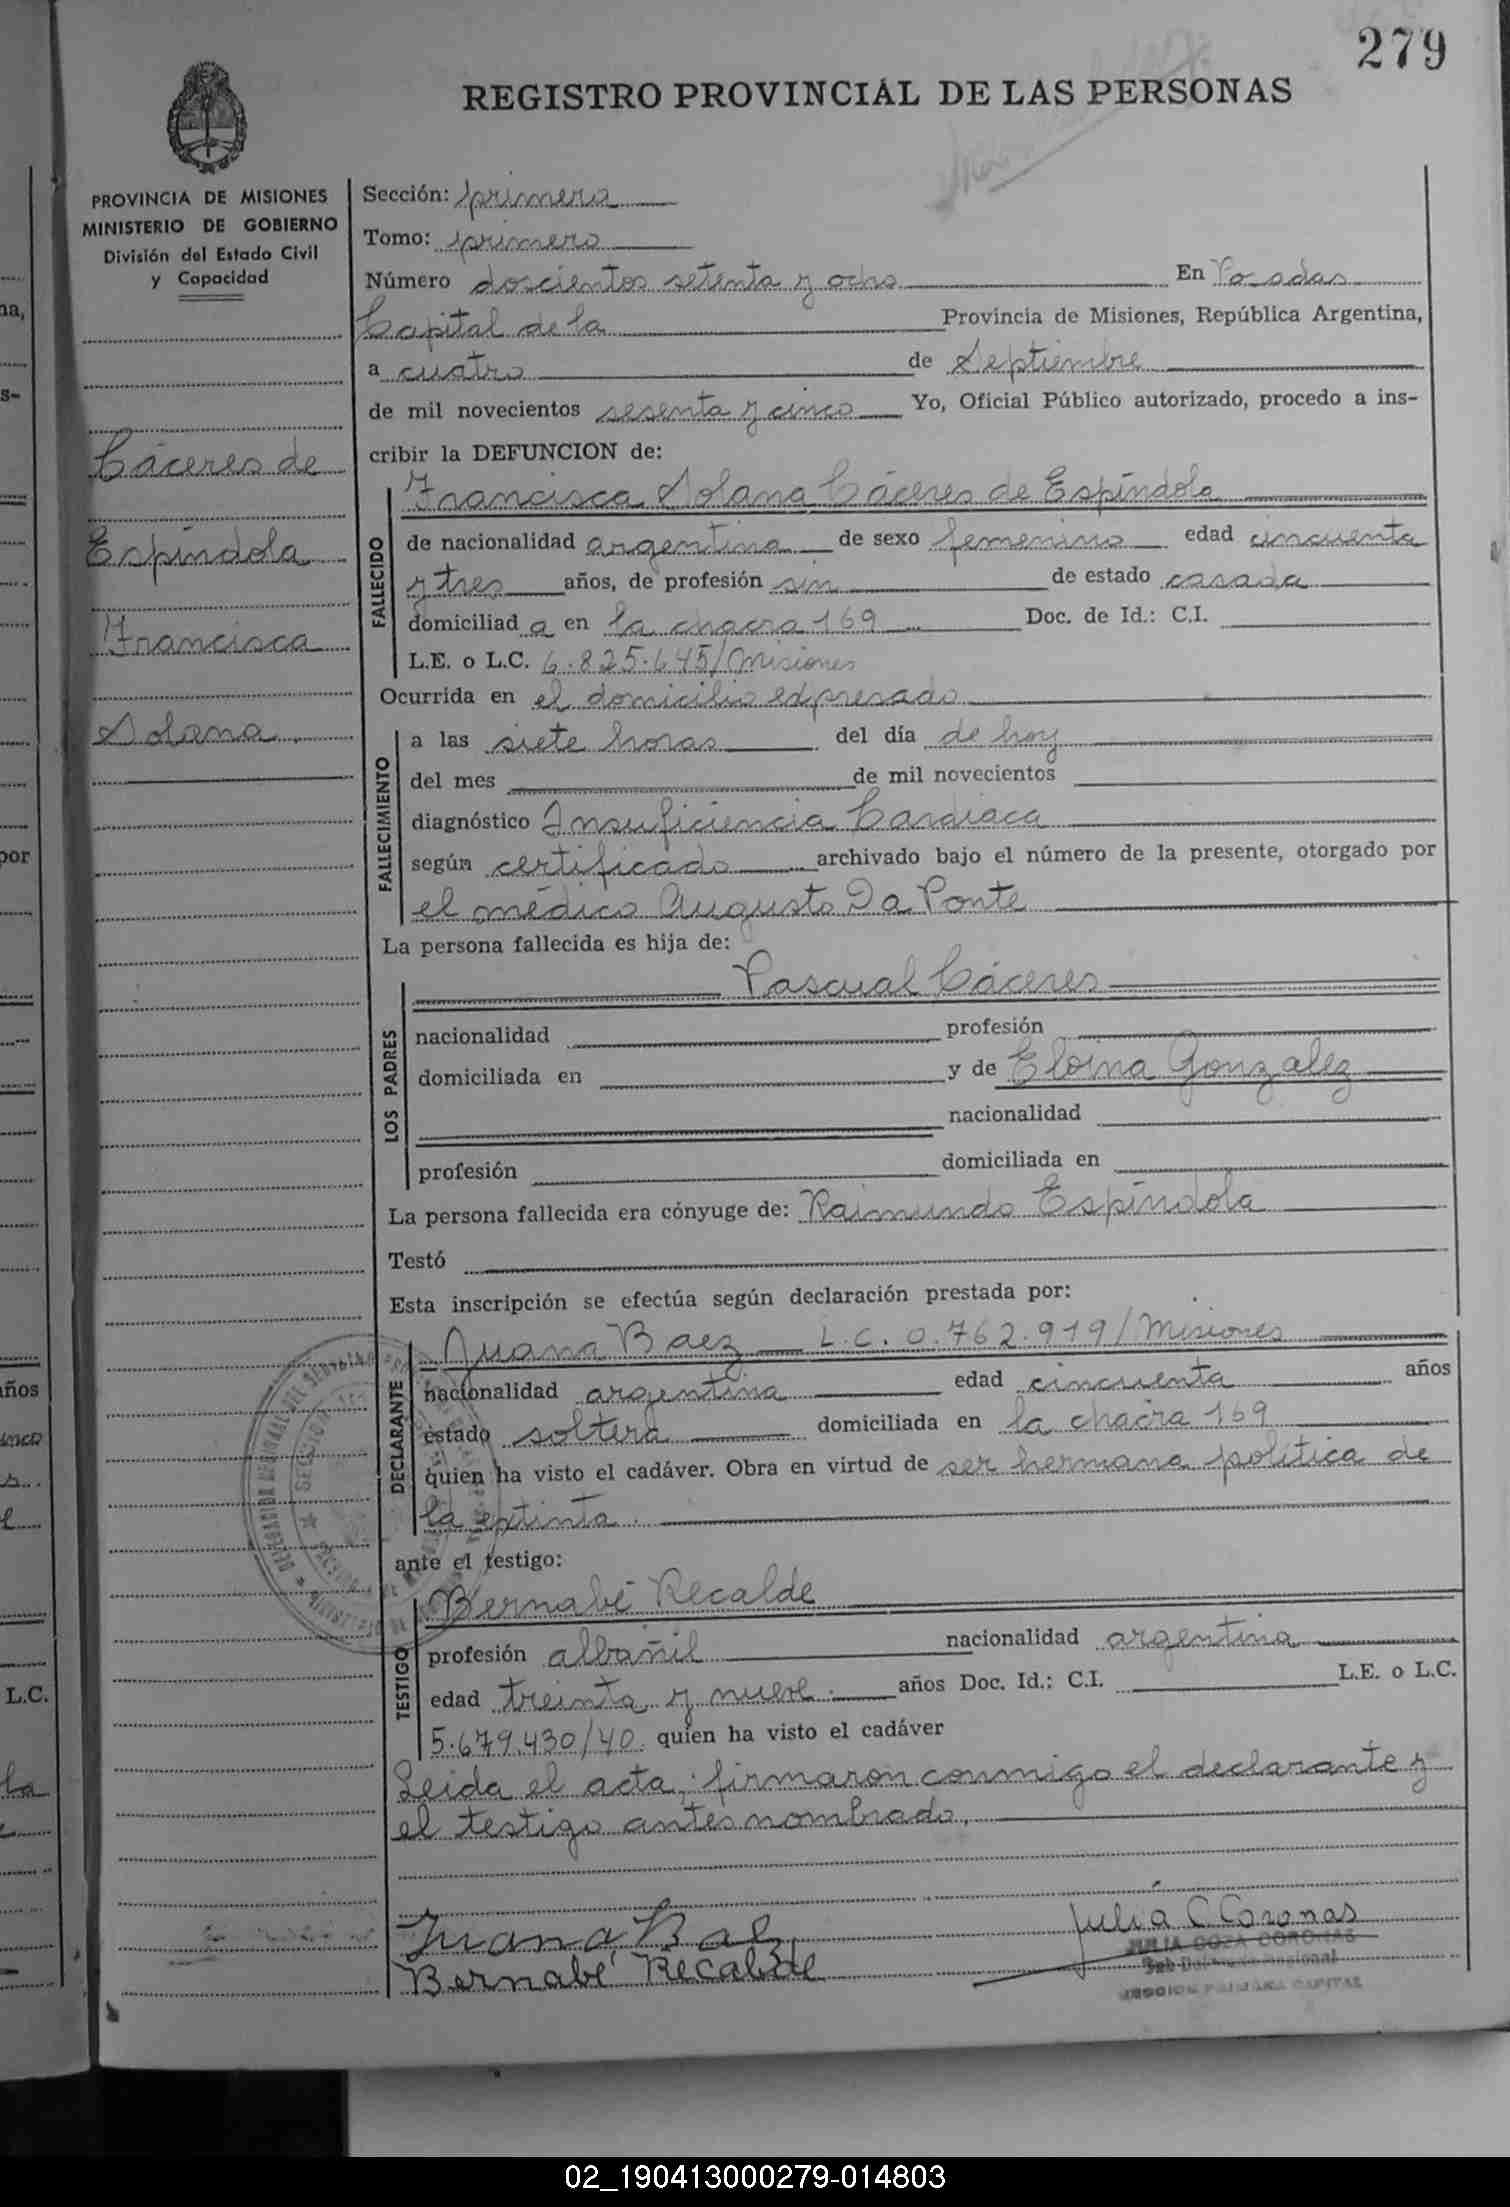 279
REGISTRO PROVINCIAL DE LAS PERSONAS
PROVINCIA DE MISIONES
MINISTERIO DE GOBIERNO
División del Estado Civil
y Capacidad
Cáceres de
Espíndola
Francisca
Solana
Sección: primera
Tomo: primero
Número doscientos setenta y ocho En Posadas
Capital de la Provincia de Misiones, República Argentina,
a cuatro de Septiembre
de mil novecientos sesenta y cinco Yo, Oficial Público autorizado, procedo a ins-
cribir la DEFUNCION de:
FALLECIDO
Francisca Solana Cáceres de Espíndola
de nacionalidad argentina de sexo femenino edad cincuenta
y tres años, de profesión sin de estado casada
domiciliad a en la chacra 169 Doc. de Id.: C.I.
L.E. o L.C. 6.825.645/Misiones
Ocurrida en el domicilio expresado
FALLECIMIENTO
a las siete horas del día de hoy
del mes de mil novecientos
diagnóstico Insuficiencia Cardíaca
según certificado archivado bajo el número de la presente, otorgado por
el médico Augusto Da Ponte
La persona fallecida es hija de:
LOS PADRES
Pascual Cáceres
nacionalidad profesión
domiciliada en y de Eloina Gonzalez
nacionalidad
profesión domiciliada en
La persona fallecida era cónyuge de: Raimundo Espíndola
Testó
Esta inscripción se efectúa según declaración prestada por:
DECLARANTE
Juana Baez L.C. 0.762.919/Misiones
nacionalidad argentina edad cincuenta años
estado soltera domiciliada en la chacra 169
quien ha visto el cadáver. Obra en virtud de ser hermana política de
la extinta.
ante el testigo:
TESTIGO
Bernabé Recalde
profesión albañil nacionalidad argentina
edad treinta y nueve años Doc. Id.: C.I. L.E. o L.C.
5.679.430/40. quien ha visto el cadáver
Leida el acta, firmaron conmigo el declarante y
el testigo antes nombrado,
Juana Bae
Bernabé Recalde
Julia C Coronas
JULIA COZA CORONAS
SECCION PRIMERA CAPITAL
02_190413000279-014803